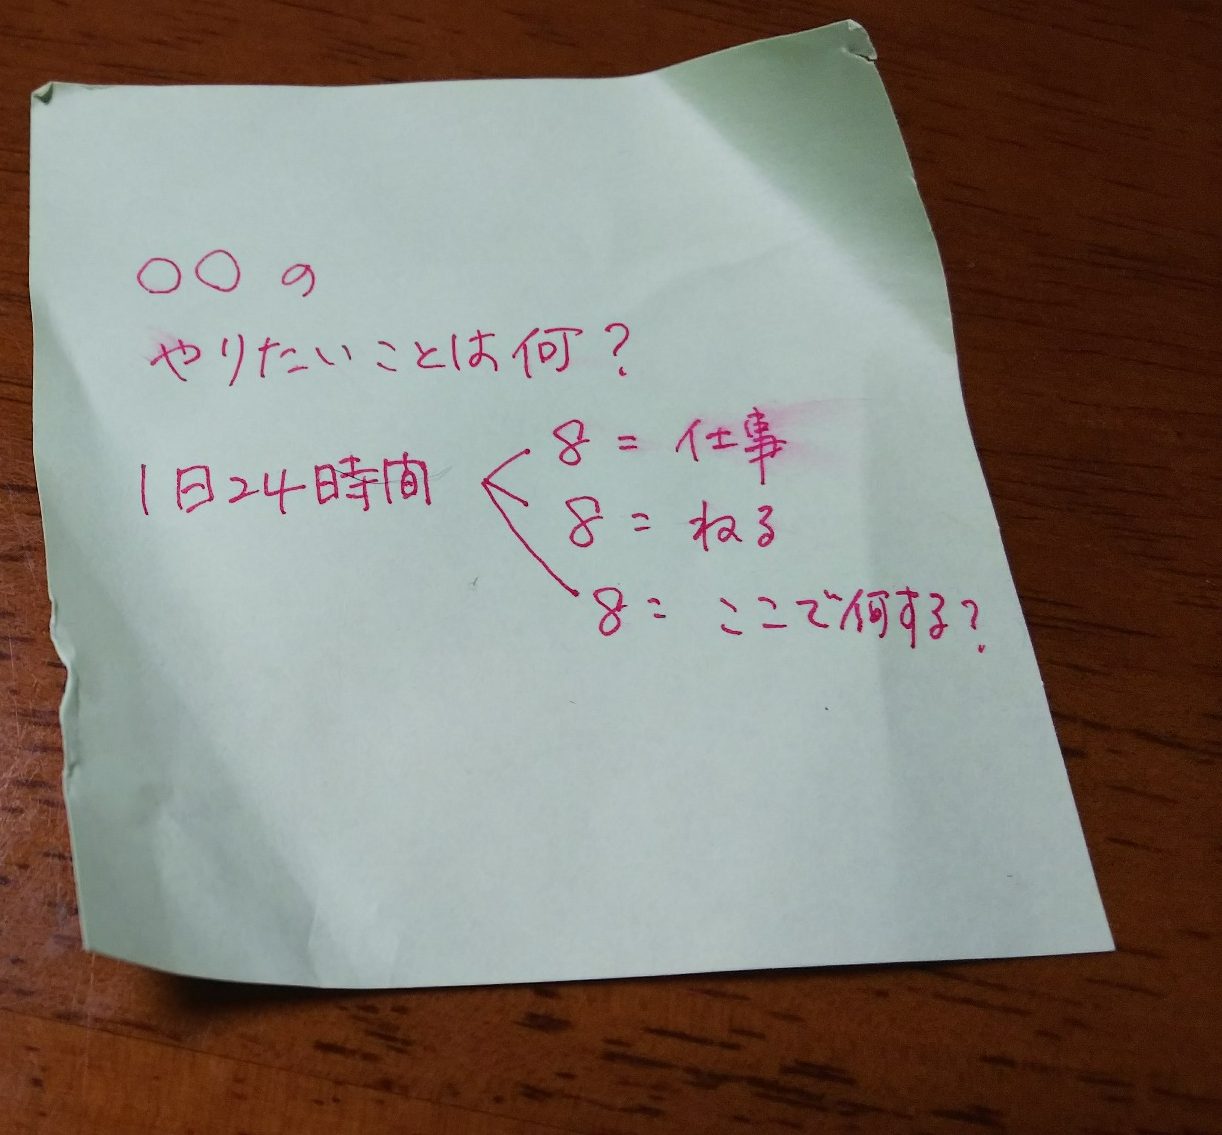 〇〇の
やりたいことは何？
1日24時間
8=仕事
8=ねる
8=ここで何する？